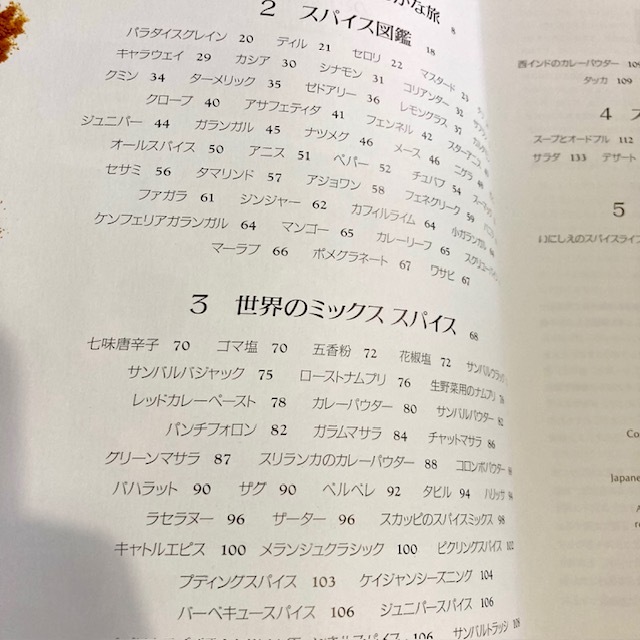 かな旅 8
2 スパイス図鑑 18
パラダイスグレイン 20 ディル 21 セロリ 22 マスタード 23
キャラウェイ 29 カシア 30 シナモン 31 コリアンダー 32
クミン 34 ターメリック 35 ゼドアリー 36 レモングラス 37
クローブ 40 アサフェティダ 41 フェンネル 42 スターアニス
ジュニパー 44 ガランガル 45 ナツメグ 46 メース 46 ニゲラ 48
オールスパイス 50 アニス 51 ペパー 52 チュバブ 54
セサミ 56 タマリンド 57 アジョワン 58 フェネグリーク 59
ファガラ 61 ジンジャー 62 カフィルライム 64 小ガランガル 64
ケンフェリアガランガル 64 マンゴー 65 カレーリーフ 65
マーラブ 66 ポメグラネート 67 ワサビ 67
3 世界のミックス スパイス 68
七味唐辛子 70 ゴマ塩 70 五香粉 72 花椒塩 72
サンバルバジャック 75 ローストナムプリ 76 生野菜用のナムプリ 76
レッドカレーペースト 78 カレーパウダー 80 サンバルパウダー 82
パンチフォロン 82 ガラムマサラ 84 チャットマサラ 86
グリーンマサラ 87 スリランカのカレーパウダー 88 コロンボパウダー
バハラット 90 ザグ 90 ベルベレ 92 タビル 94 ハリッサ 94
ラセラヌー 96 ザーター 96 スカッピのスパイスミックス 98
キャトルエピス 100 メランジュクラシック 100 ピクリングスパイス 102
プティングスパイス 103 ケイジャンシーズニング 104
バーベキュースパイス 106 ジュニパースパイス 106
サンバルトラッシ 108
西インドのカレーパウダー 109
タッカ 109
4
スープとオードブル 112
サラダ 133 デザート
5
いにしえのスパイスライフ
Co
Japane
A
re